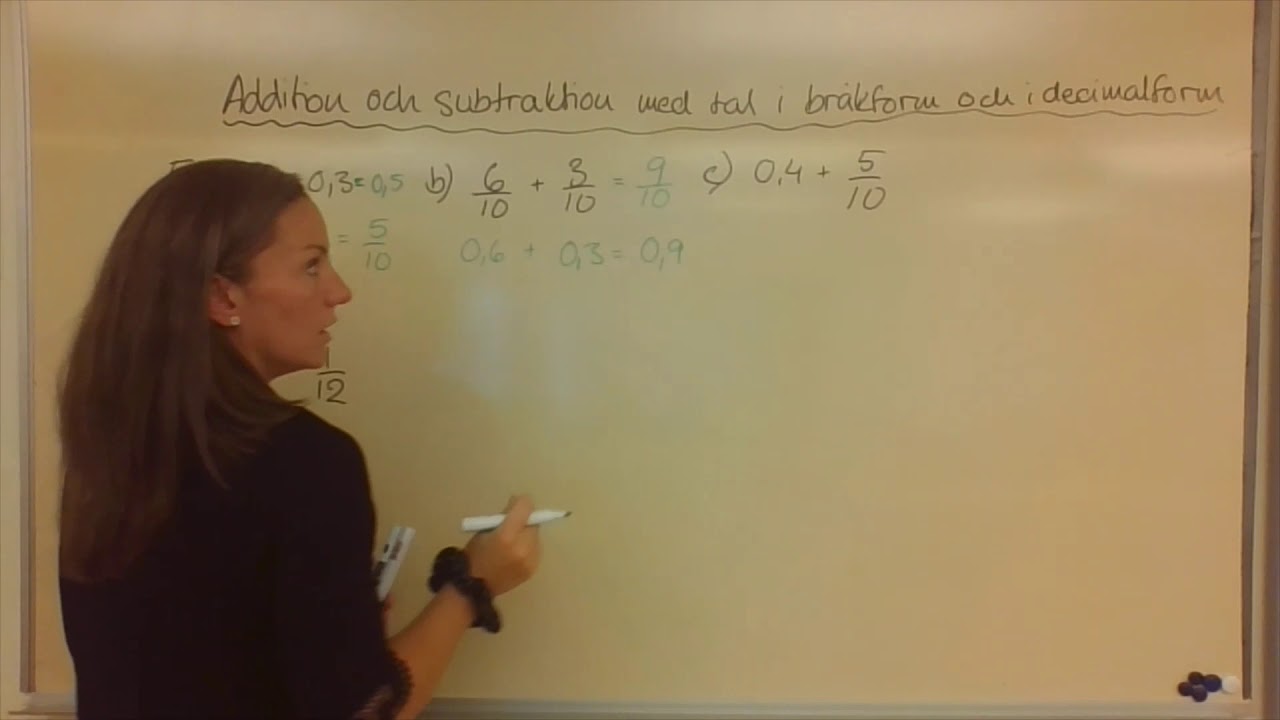 Addition och subtraktion med tal i bråkform och i decimalform
0,3 = 0,5 b) 6/10 + 3/10 = 9/10 c) 0,4 + 5/10
= 5/10 0,6 + 0,3 = 0,9
1/12